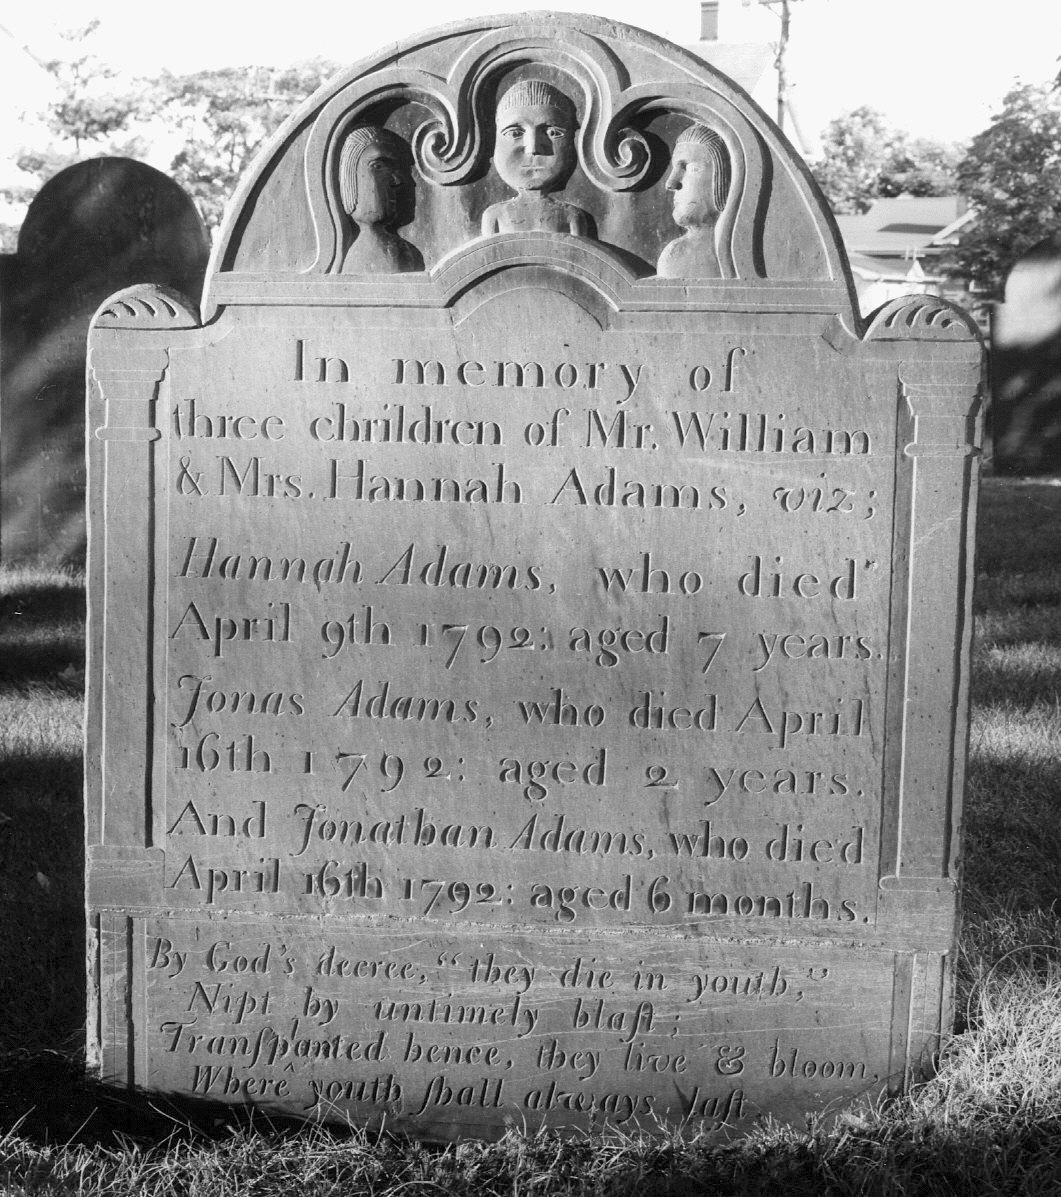 In memory of
three children of Mr. William
& Mrs. Hannah Adams, viz;
Hannah Adams, who died
April 9th 1792: aged 7 years.
Jonas Adams, who died April
16th 1792: aged 2 years.
And Jonathan Adams, who died
April 16th 1792: aged 6 months.
By God's decree, “they die in youth,”
Nipt by untimely blaſt;
Tranſplanted hence, they live & bloom,
Where youth ſhall always laſt.